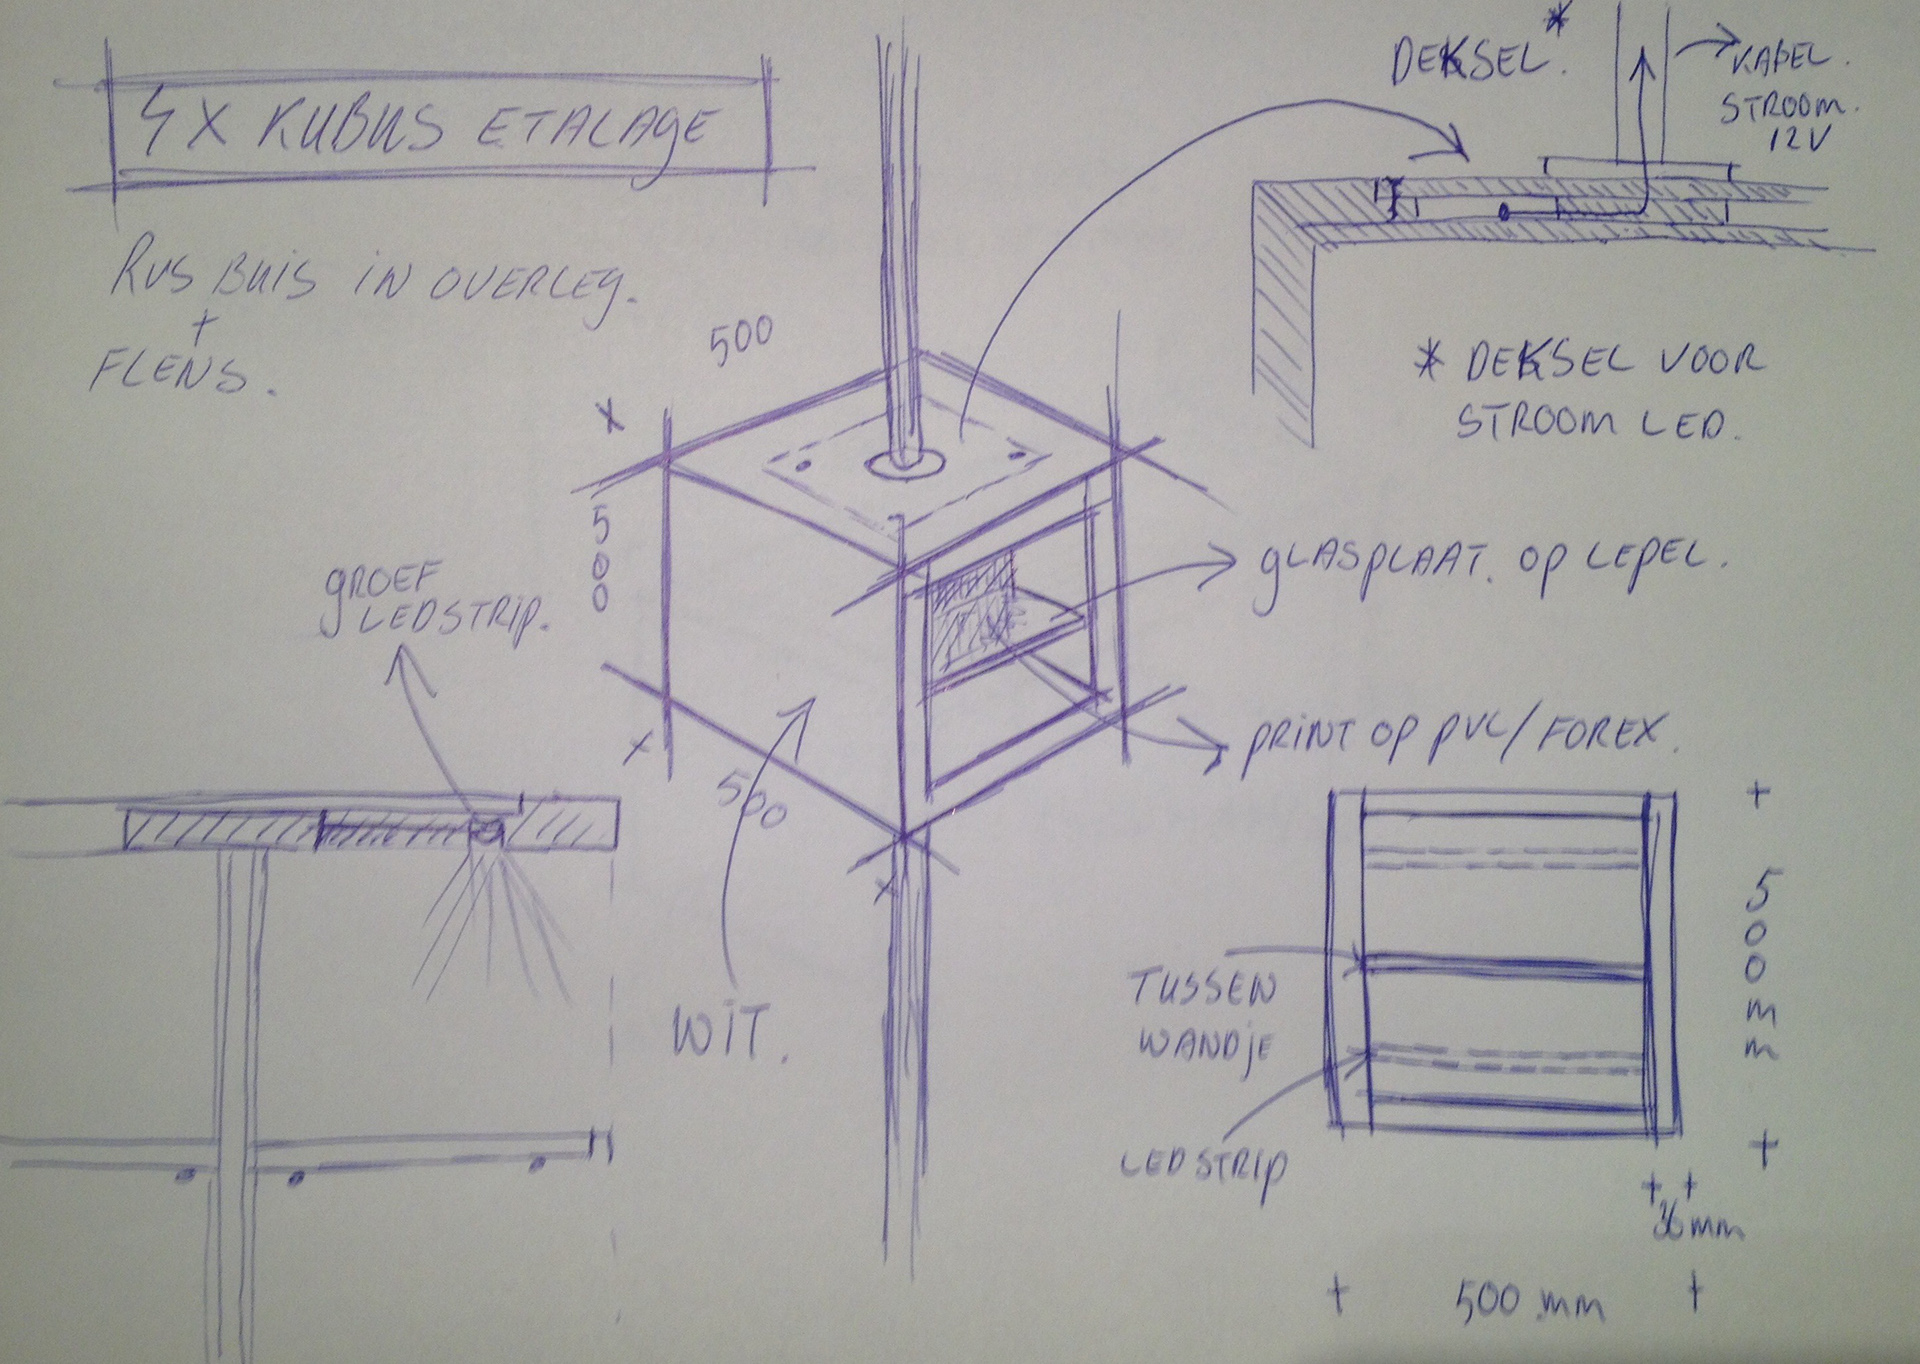 4X KUBUS ETALAGE
RVS BUIS IN OVERLEG.
+
FLENS.
DEKSEL.*
KABEL.
STROOM.
12V
* DEKSEL VOOR
STROOM LED.
500
X
500
X
500
X
GROEF
LEDSTRIP.
GLASPLAAT. OP LEPEL.
PRINT OP PVC/FOREX.
WIT.
TUSSEN
WANDJE
LEDSTRIP
500mm
mm
500 mm